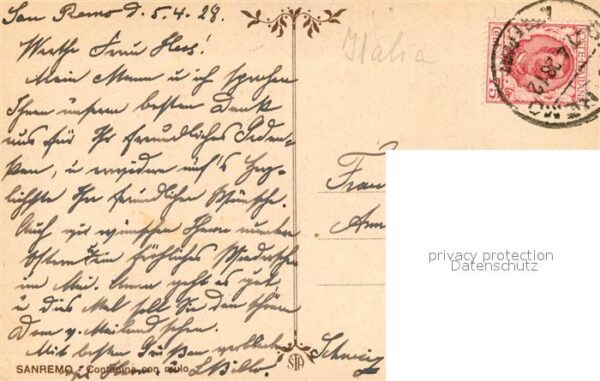 San Remo d. 5.4.28.
Werthe Frau Hess!
Mein Mann u ich sprechen
Ihnen unseren besten Dank
aus für Ihr freundliches Geden-
ken, u erwidern auf's Herz-
lichste Ihre freundlichen Wünsche.
Auch wir wünschen Ihnen
Ostern ein fröhliches Wiedersehn
im Mai. Anna geht es gut
u dies Mal soll Sie den schönen
Dom v. Mailand sehen.
Mit besten Grüßen
SANREMO - Contadina con mulo
Italia
Frau
Schweiz
privacy protection
Datenschutz